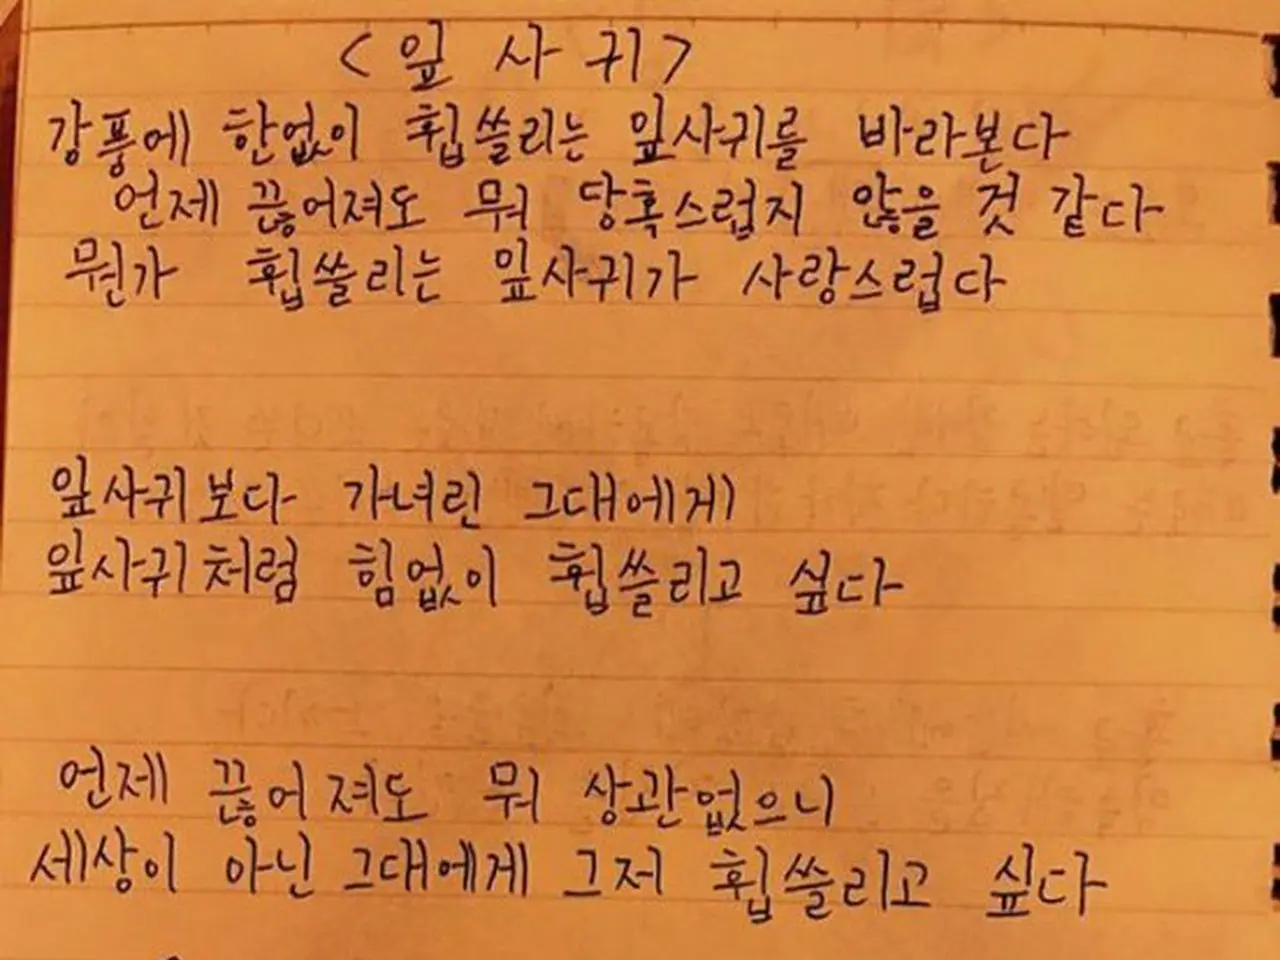 <잎사귀>
강풍에 한없이 휩쓸리는 잎사귀를 바라본다
언제 끊어져도 뭐 당혹스럽지 않을 것 같다
뭔가 휩쓸리는 잎사귀가 사랑스럽다
잎사귀보다 가녀린 그대에게
잎사귀처럼 힘없이 휩쓸리고 싶다
언제 끊어져도 뭐 상관없으니
세상이 아닌 그대에게 그저 휩쓸리고 싶다